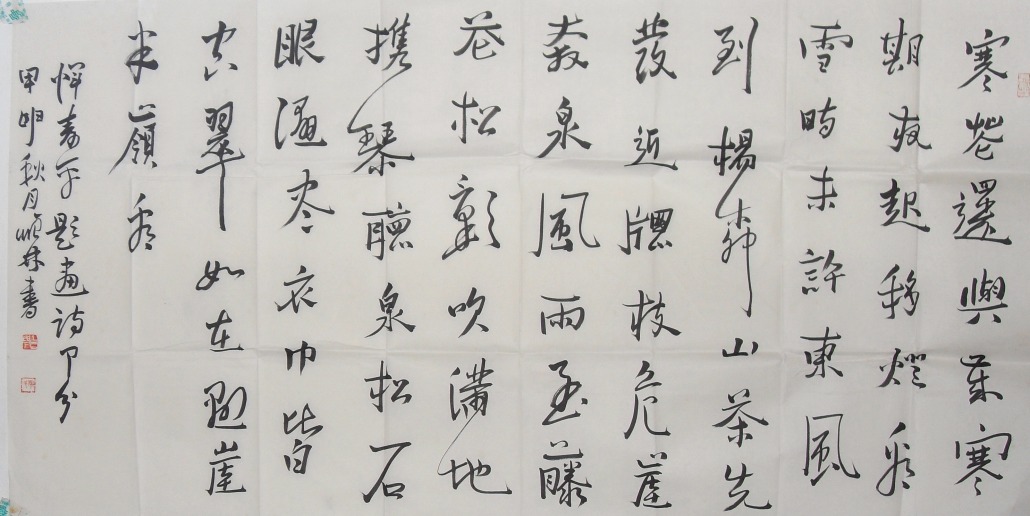 寒花還與歲寒
期夜起移燈看
雪時未許東風
到楊柳山茶先
發近窗枝危崖
泉風雨至藤
花松影吹滿地
攜琴聽泉松石
眠濕盡衣巾皆
空翠如在懸崖
半嶺看
惲壽平題畫詩
甲申秋月順林書